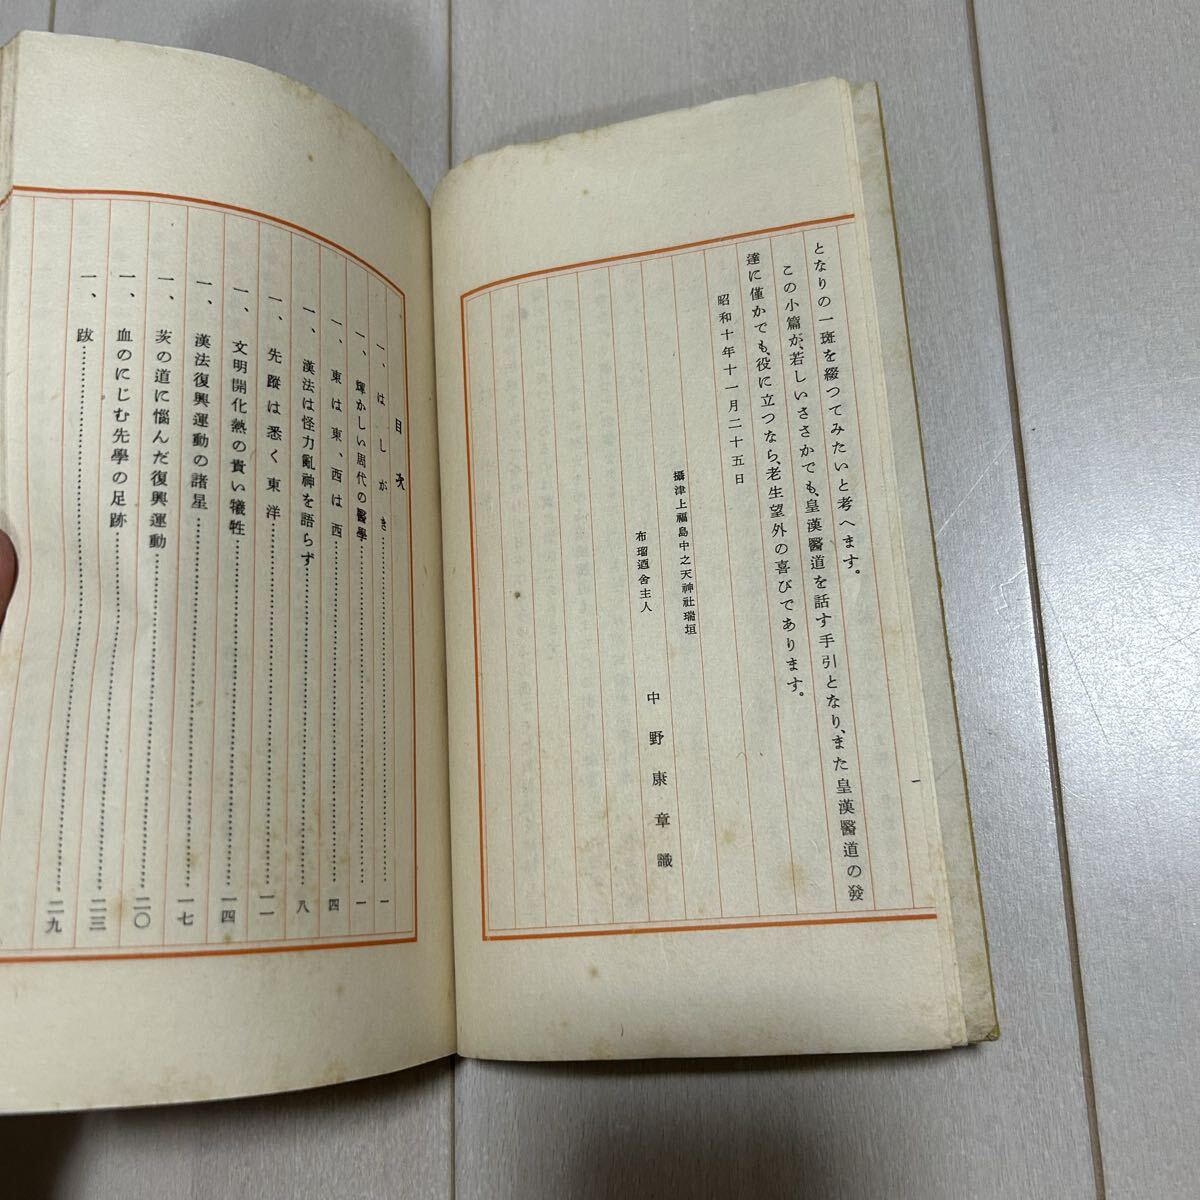 となりの一斑を綴つてみたいと考へます。
この小篇が、若しいささかでも、皇漢醫道を話す手引となり、また皇漢醫道の發
達に僅かでも、役に立つなら、老生望外の喜びであります。
昭和十年十一月二十五日
攝津上福島中之天神社瑞垣
布瑠酒舍主人
中野康章識
一
目次
一、はしがき…………一
一、輝かしい周代の醫學…………一
一、東は東、西は西…………四
一、漢法は怪力亂神を語らず…………八
一、先蹤は悉く東洋…………一一
一、文明開化熱の貴い犧牲…………一四
一、漢法復興運動の諸星…………一七
一、茨の道に惱んだ復興運動…………二〇
一、血のにじむ先學の足跡…………二三
一、跋…………二九